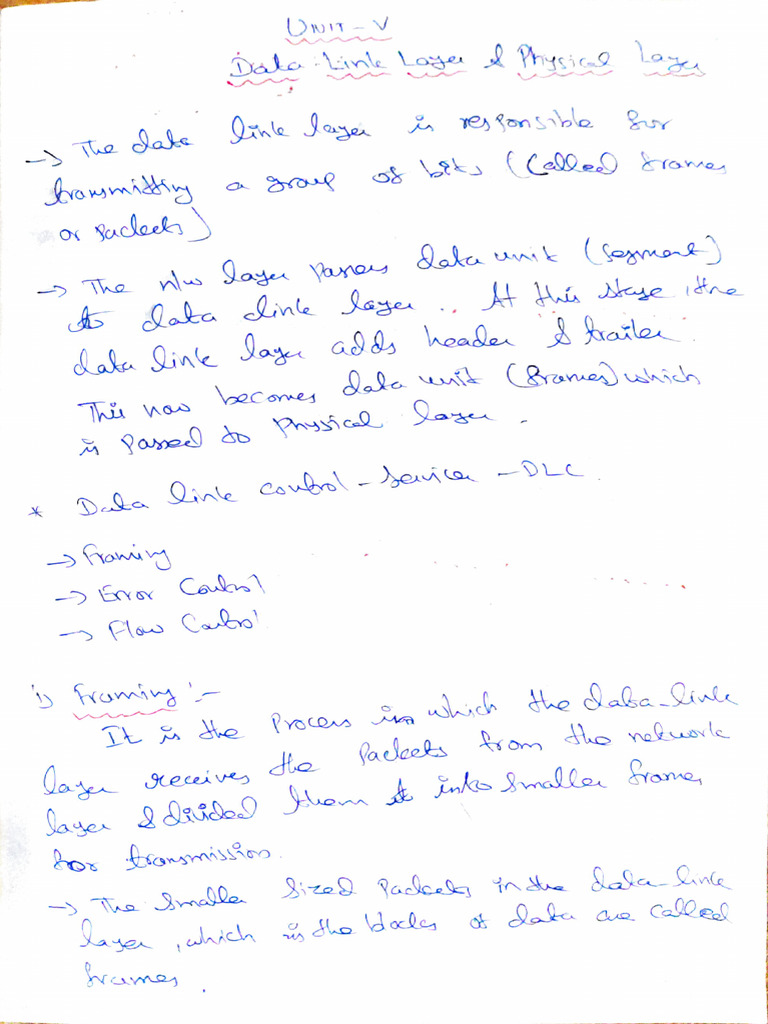 UNIT - V
Data Link Layer & Physical Layer
→ The data link layer is responsible for
transmitting a group of bits (Called frames
or packets)
→ The n/w layer passes data unit (segment)
to data link layer. At this stage, the
data link layer adds header & trailer.
This now becomes data unit (frames) which
is passed to Physical layer.
* Data link control - service - DLC.
→ Framing
→ Error Control
→ Flow Control
1) Framing :-
It is the process in which the data-link
layer receives the packets from the network
layer & divided them into smaller frames
for transmission.
→ The smaller sized packets in the data-link
layer, which is the blocks of data are called
frames.